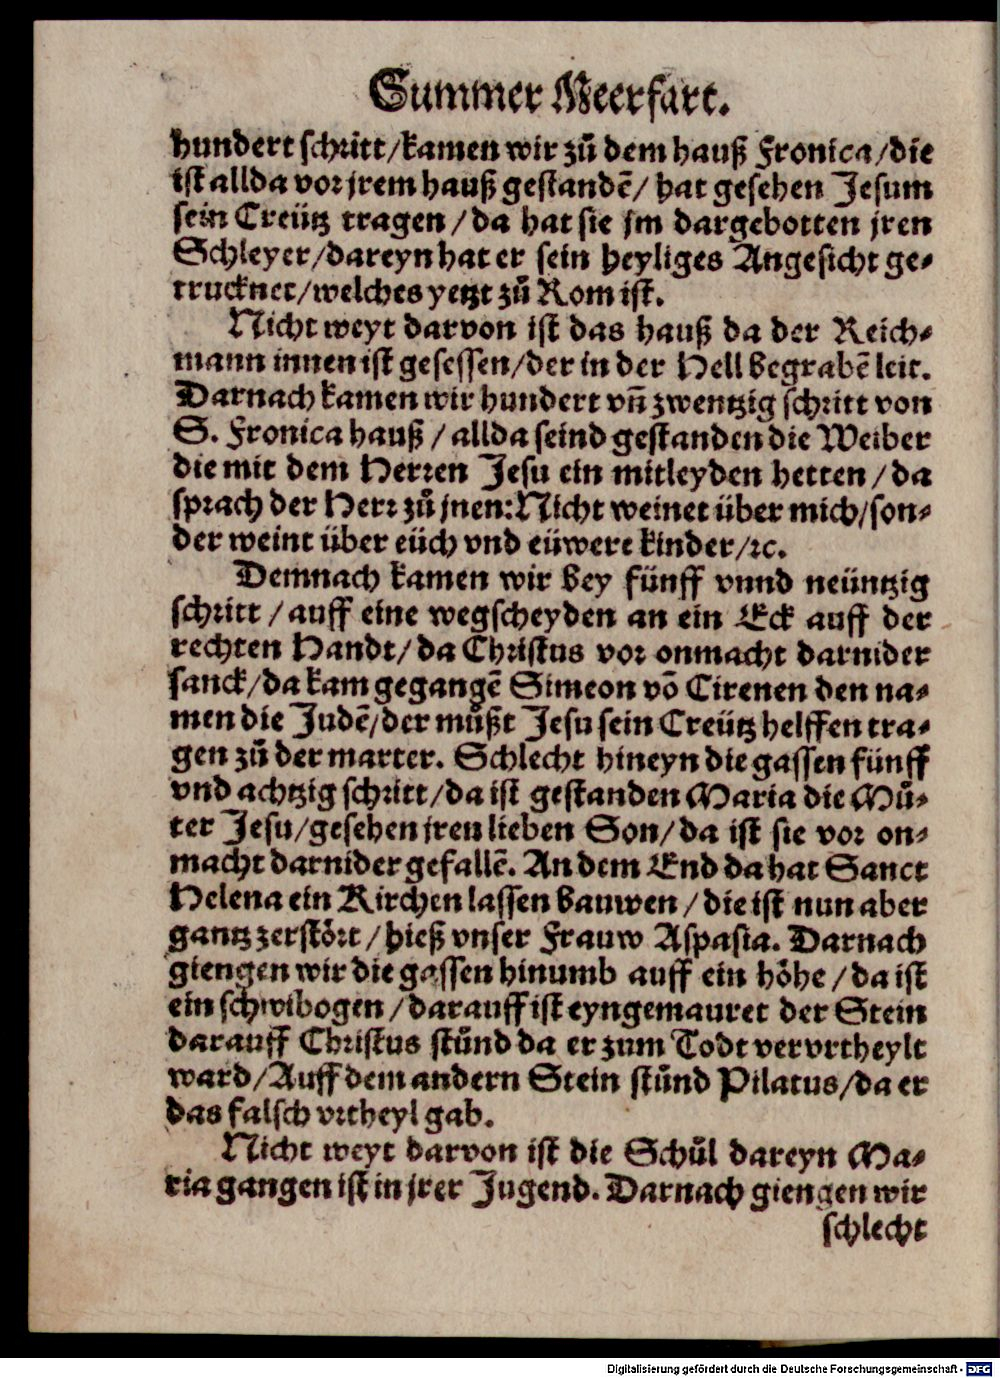 Summer Meerfart.
hundert schritt/kamen wir zů dem hauß Fronica/die
ist allda vor jrem hauß gestandẽ/ hat gesehen Jesum
sein Creütz tragen / da hat sie jm dargebotten jren
Schleyer/dareyn hat er sein heyliges Angesicht ge-
trucknet/welches yetzt zů Rom ist.
Nicht weyt darvon ist das hauß da der Reich-
mann innen ist gesessen/der in der Hell begrabẽ leit.
Darnach kamen wir hundert vñ zwentzig schritt von
S. Fronica hauß / allda seind gestanden die Weiber
die mit dem Herren Jesu ein mitleyden hetten / da
sprach der Herr zů jnen: Nicht weinet über mich/son-
der weint über eüch vnd eüwere kinder/ꝛc.
Demnach kamen wir bey fünff vnnd neüntzig
schritt / auff eine wegscheyden an ein Eck auff der
rechten Handt/ da Christus vor onmacht darnider
sanck/da kam gegangẽ Simeon võ Cirenen den na-
men die Judẽ/der můßt Jesu sein Creütz helffen tra-
gen zů der marter. Schlecht hineyn die gassen fünff
vnd achtzig schritt/da ist gestanden Maria die Mů-
ter Jesu/gesehen jren lieben Son/da ist sie vor on-
macht darnider gefallẽ. An dem End da hat Sanct
Helena ein Kirchen lassen bauwen / die ist nun aber
gantz zerstört / hieß vnser Frauw Aspasia. Darnach
giengen wir die gassen hinumb auff ein höhe / da ist
ein schwibogen / darauff ist eyngemauret der Stein
darauff Christus stůnd da er zum Todt vervrtheylt
ward/Auff dem andern Stein stůnd Pilatus/da er
das falsch vrtheyl gab.
Nicht weyt darvon ist die Schůl dareyn Ma-
ria gangen ist in jrer Jugend. Darnach giengen wir
schlecht
Digitalisierung gefördert durch die Deutsche Forschungsgemeinschaft - DFG